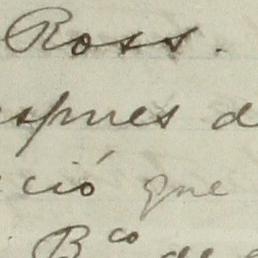 Ross.
espues d
ció que
Bco de